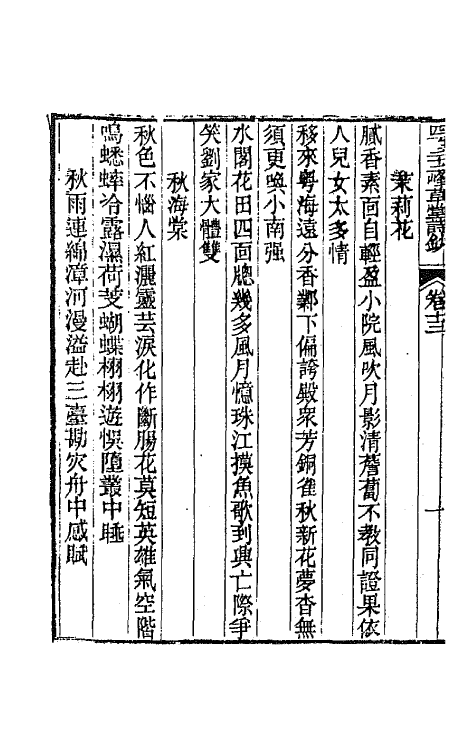 草堂詩鈔　卷十二　一
茉莉花
膩香素面自輕盈小院風吹月影清薝蔔不教同證果依
人兒女太多情
移來粵海遠分香鄴下偏誇殿衆芳銅雀秋新花夢杳無
須更喚小南强
水閣花田四面牕幾多風月憶珠江摸魚歌到興亡際爭
笑劉家大體雙
秋海棠
秋色不惱人紅灑靈芸淚化作斷腸花莫短英雄氣空階
鳴蟋蟀冷露濕荷芰蝴蝶栩栩遊悞墮叢中睡
秋雨連綿漳河漫溢赴三臺勘灾舟中感賦